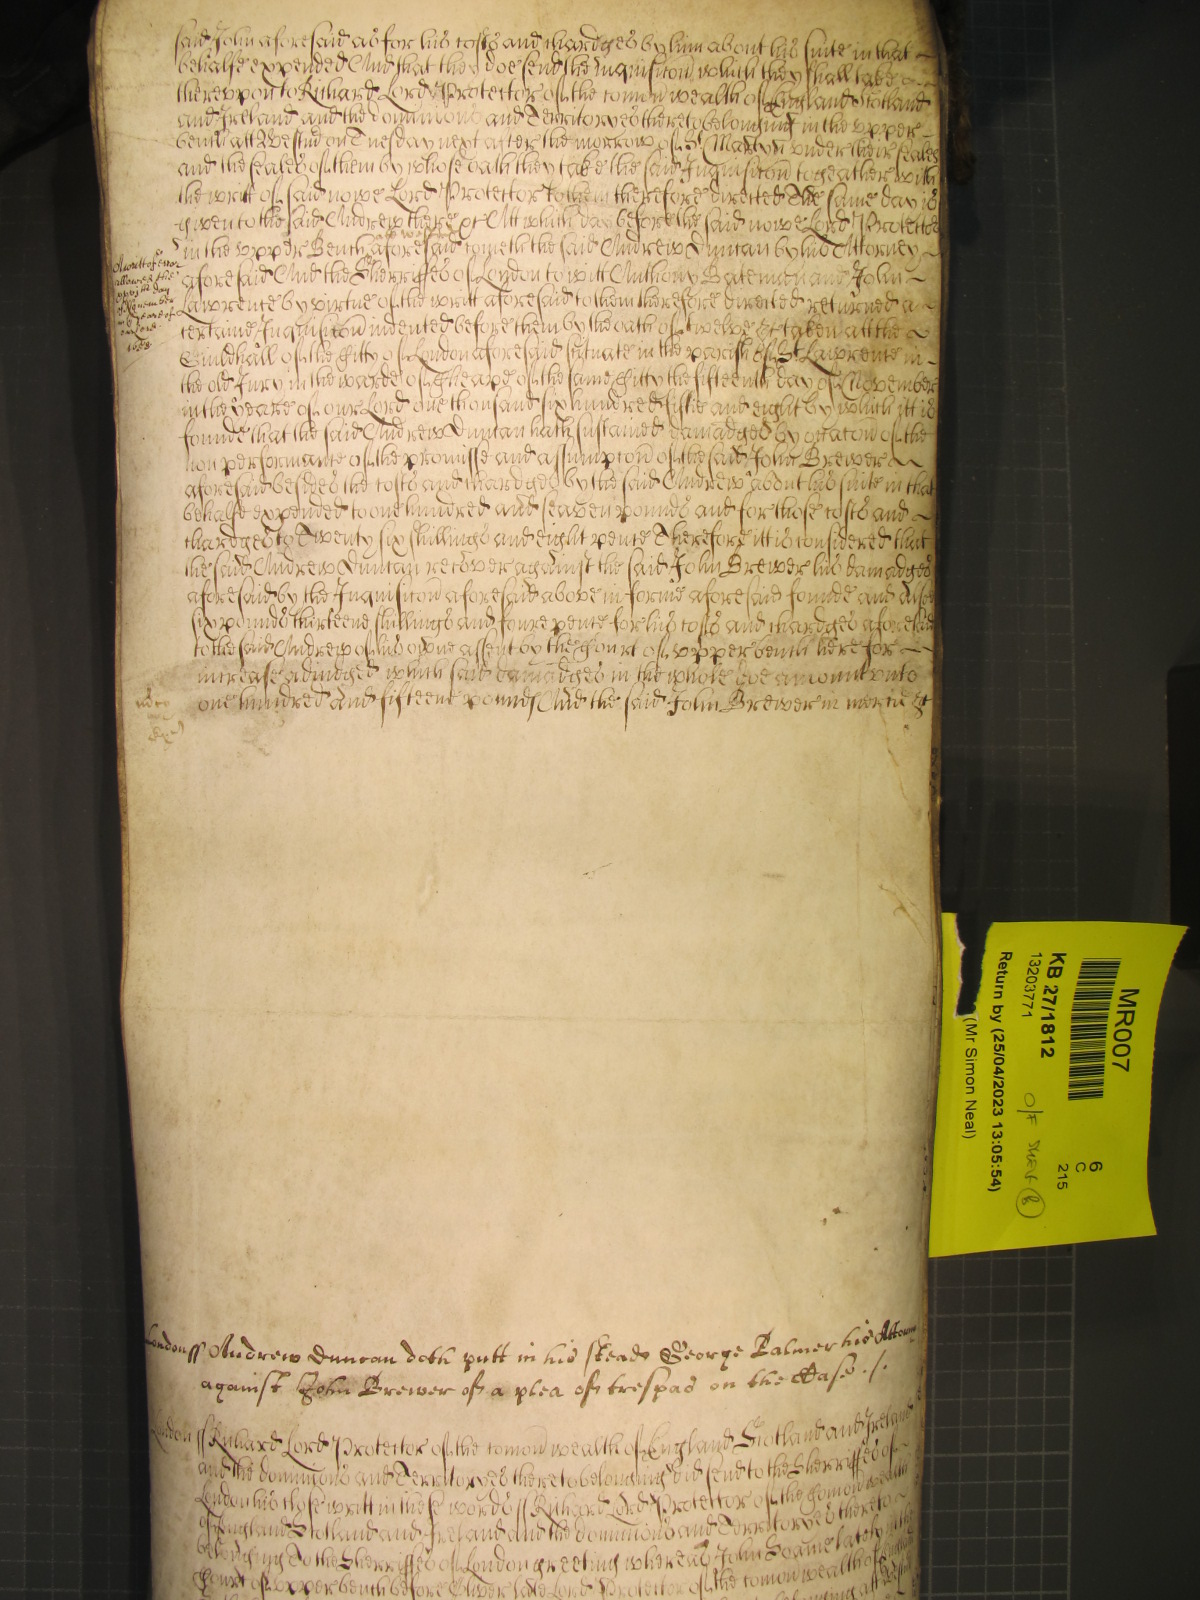 said John aforesaid as for his costs and chardges by him about his suite in that
behalfe expended And that they doe send the Inquisicon which they shall take
therevpon to Richard Lord Protector of the comon wealth of England Scotland
and Ireland and the dominions and Territoryes thereto belonging in the vpper
bench att Westm on Tuesday next after the morrow of St Martyn vnder their seales
and the seales of them by whose oath they take the said Inquisicon togeather with
the writt of said nowe Lord Protector to them therefore directed The same day is
given to the said Andrew there &c Att which day before the said nowe Lord Protector
in the vpper Bench aforesaid cometh the said Andrew Duncan by his Attorney
aforesaid And the Sherriffes of London to witt Anthony Bateman and John
Lawrence by virtue of the writt aforesaid to them therefore directed returned a
certaine Inquisicon indented before them by the oath of twelve &c taken att the
Guindhall of the Citty of London aforesaid scituate in the parish of St Lawrence in
the old Jury in the warde of Cheape of the same Citty the fifteenth day of November
in the yeare of our Lord one thousand six hundred fiftie and eight by which itt is
founde that the said Andrew Duncan hath sustained damadges by occacon of the
non performance of the promisse and assumpcon of the said John Brewer
aforesaid besides the costs and chardges by the said Andrew about his suite in that
behalfe expended to one hundred and seaven pounds and for those costs and
chardges to Twenty six shillings and eight pence Therefore itt is considered that
the said Andrew Duncan recover against the said John Brewer his damadges
aforesaid by the Inquisicon aforesaid above in forme aforesaid founde and alsoe
six pounds thirteene shillings and foure pence for his costs and chardges aforesaid
to the said Andrew of his owne assent by the Court of vpper bench here for
increase adiudged which said damadges in the whole doe amount vnto
one hundred and fifteene pounds And the said John Brewer in mercie &c
A writt of error
allowed the
day
London ss Andrew Duncan doth putt in his stead George Palmer his Attorn
against John Brewer of a plea of trespas on the Case ./.
London ss Richard Lord Protector of the comon wealth of England Scotland and Ireland
and the dominions and Territoryes thereto belonging did send to the Sherriffes of
London his close writt in these words ss Richard Lord Protector of the comon wealth
of England Scotland and Ireland and the dominions and Territoryes thereto
belonging To the Sherriffes of London greeting whereas John Soame lately in the
Court of vpper bench before Oliver late Lord Protector of the comon wealth of England
MR007
KB 27/1812
13203771
6
C
215
Return by (25/04/2023 13:05:54)
(Mr Simon Neal)